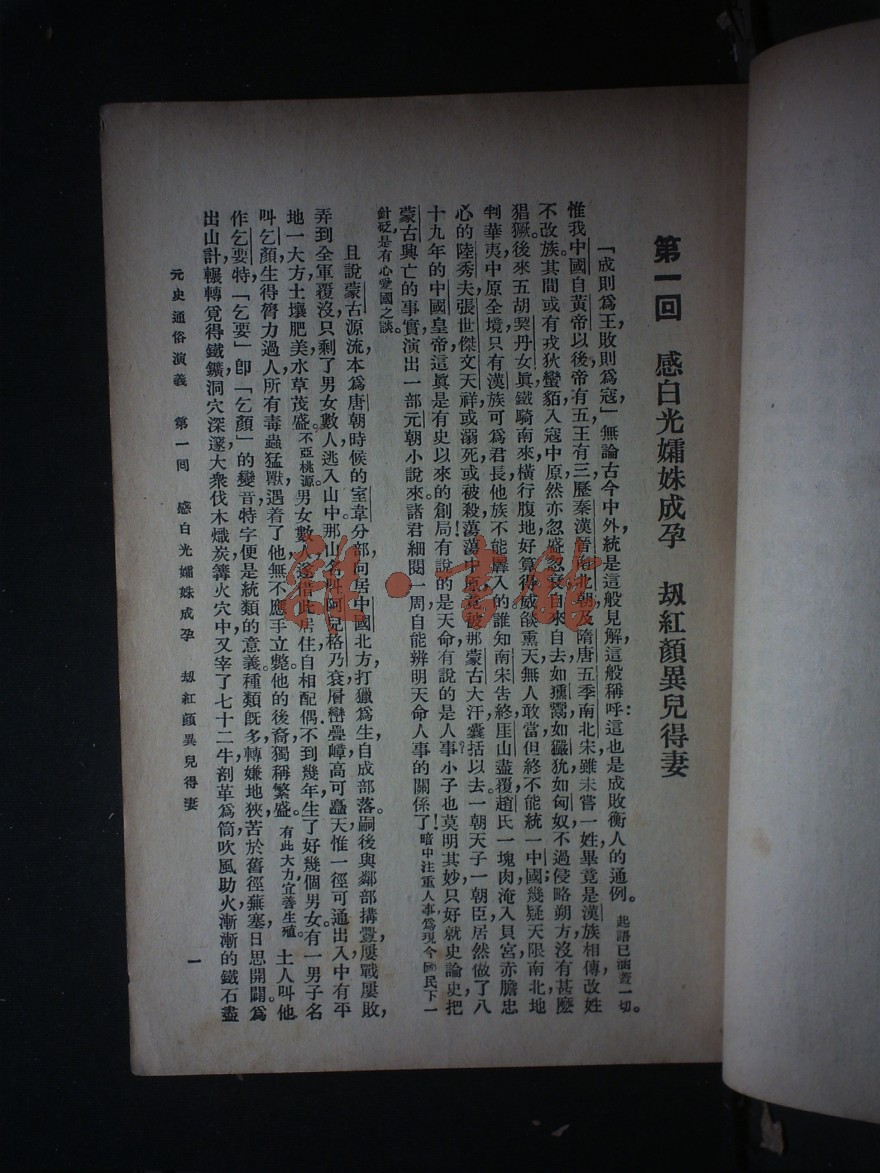 第一回　感白光孀姝成孕　刼紅顏異兒得妻
「成則爲王，敗則爲寇，」無論古今中外，統是這般見解，這般稱呼；這也是成敗衡人的通例。起語已涵蓋一切。
惟我中國自黃帝以後，帝有五，王有三，歷秦漢晉南北朝及隋唐五季南北宋，雖未嘗一姓，畢竟是漢族相傳，改姓
不改族。其間或有戎狄蠻貊，入寇中原，然亦忽盛忽衰，自來自去，如獯鬻，如玁狁，如匈奴，不過侵略朔方，沒有甚麽
猖獗。後來五胡契丹女眞，鐵騎南來，橫行腹地，好算得威燄熏天，無人敢當，但終不能統一中國；幾疑天限南北，地
判華夷，中原全境，只有漢族可爲君長，他族不能羼入的。誰知南宋告終，厓山盡覆，趙氏一塊肉，淹入貝宮，赤膽忠
心的陸秀夫張世傑文天祥，或溺死，或被殺，蕩蕩中原，竟被那蒙古大汗，囊括以去！一朝天子一朝臣，居然做了八
十九年的中國皇帝，這眞是有史以來的創局！有說的是天命，有說的是人事，小子也莫明其妙，只好就史論史，把
蒙古興亡的事實，演出一部元朝小說來。諸君細閱一周，自能辨明天命人事的關係了！暗中注重人事，爲現今國民下一
針砭，是有心愛國之談。
且說蒙古源流，本爲唐朝時候的室韋分部，向居中國北方，打獵爲生，自成部落。嗣後與鄰部搆釁，屢戰屢敗，
弄到全軍覆沒，只剩了男女數人，逃入山中。那山名叫阿兒格乃衮，層巒疊嶂，高可矗天，惟一徑可通出入，中有平
地一大方，土壤肥美，水草茂盛。不亞桃源。男女數人，遂借此居住，自相配偶。不到幾年，生了好幾個男女。有一男子名
叫乞顏，生得膂力過人，所有毒蟲猛獸，遇着了他，無不應手立斃。他的後裔獨稱繁盛。有此大力，宜善生殖。土人叫他
作乞要特，「乞要」卽「乞顏」的變音，特字便是統類的意義。種類旣多，轉嫌地狹，苦於舊徑蕪塞，日思開闢。爲
出山計，輾轉覓得鐵鑛，洞穴深邃，大衆伐木熾炭，篝火穴中，又宰了七十二牛，剖革爲筒，吹風助火，漸漸的鐵石盡
元史通俗演義　第一回　感白光孀姝成孕　刼紅顏異兒得妻　一
雜·書館